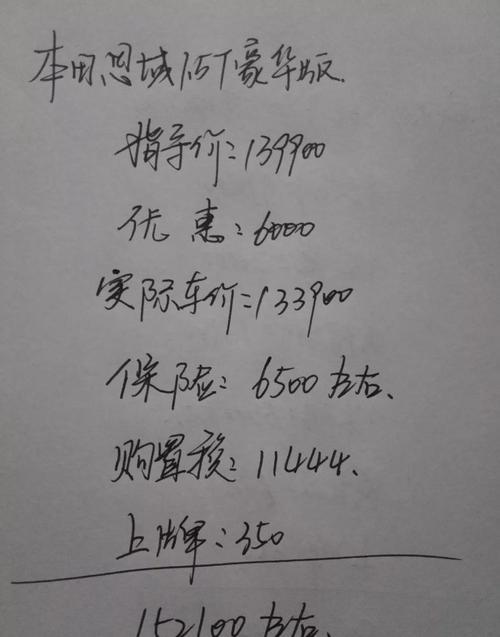 本田思域1.5T豪华版.
指导价:139900
优惠:6000
实际车价:133900
保险:6500左右、
购置税:11444.
上牌:350
152100左右.